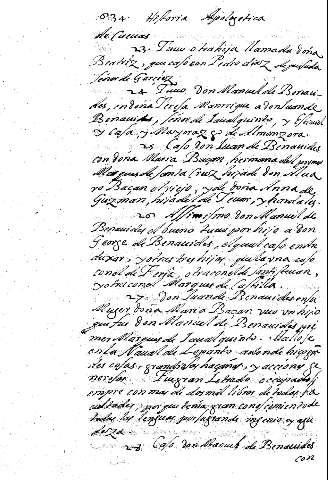 634. Historia Apologetica
de Cuevas
23. Tuvo otra hija llamada doña
Beatriz, que caso con Pedro diaz de quesada
señor de Garciez
24. Tuvo, Don Manuel de Benaui-
des, en doña Teresa Manrrique a don Juan de
Benauides, señor de Jaualquinto, y
y Casa, y Mayorazgo de Almanzora
25. Caso Don Juan de Benauides
con doña Maria Baçan, hermana del primer
Marques de Santa Cruz, hija de don Alua
ro Baçan el viejo, y de doña Anna de
Guzman, hija del de Teuar, y
26. Assimismo Don Manuel de
Benauides el bueno tuuo por hijo a don
George de Benauides, el qual caso entre
y otras tres hijas, que la vna caso
con el de Feria, otra con el de
y otra con el Marques de
27. Don Juan de Benauides en su
Muger doña Maria Baçan tuuo vn hijo
que fue Don Manuel de Benauides pri
mer Marques de Jaualquinto. Hallose
en la Naual de Lepanto adonde hizo gran
des cosas, grandes hazañas, y acciones ge
nerosas. Fue gran Letrado, ocupado si
empre con mas de dos mil libros de todas fa
cultades, porque tenia gran conocimiento de
todas las lenguas, por su grande ingenio, y agu
deza
28. Caso Don Manuel de Benauides
con